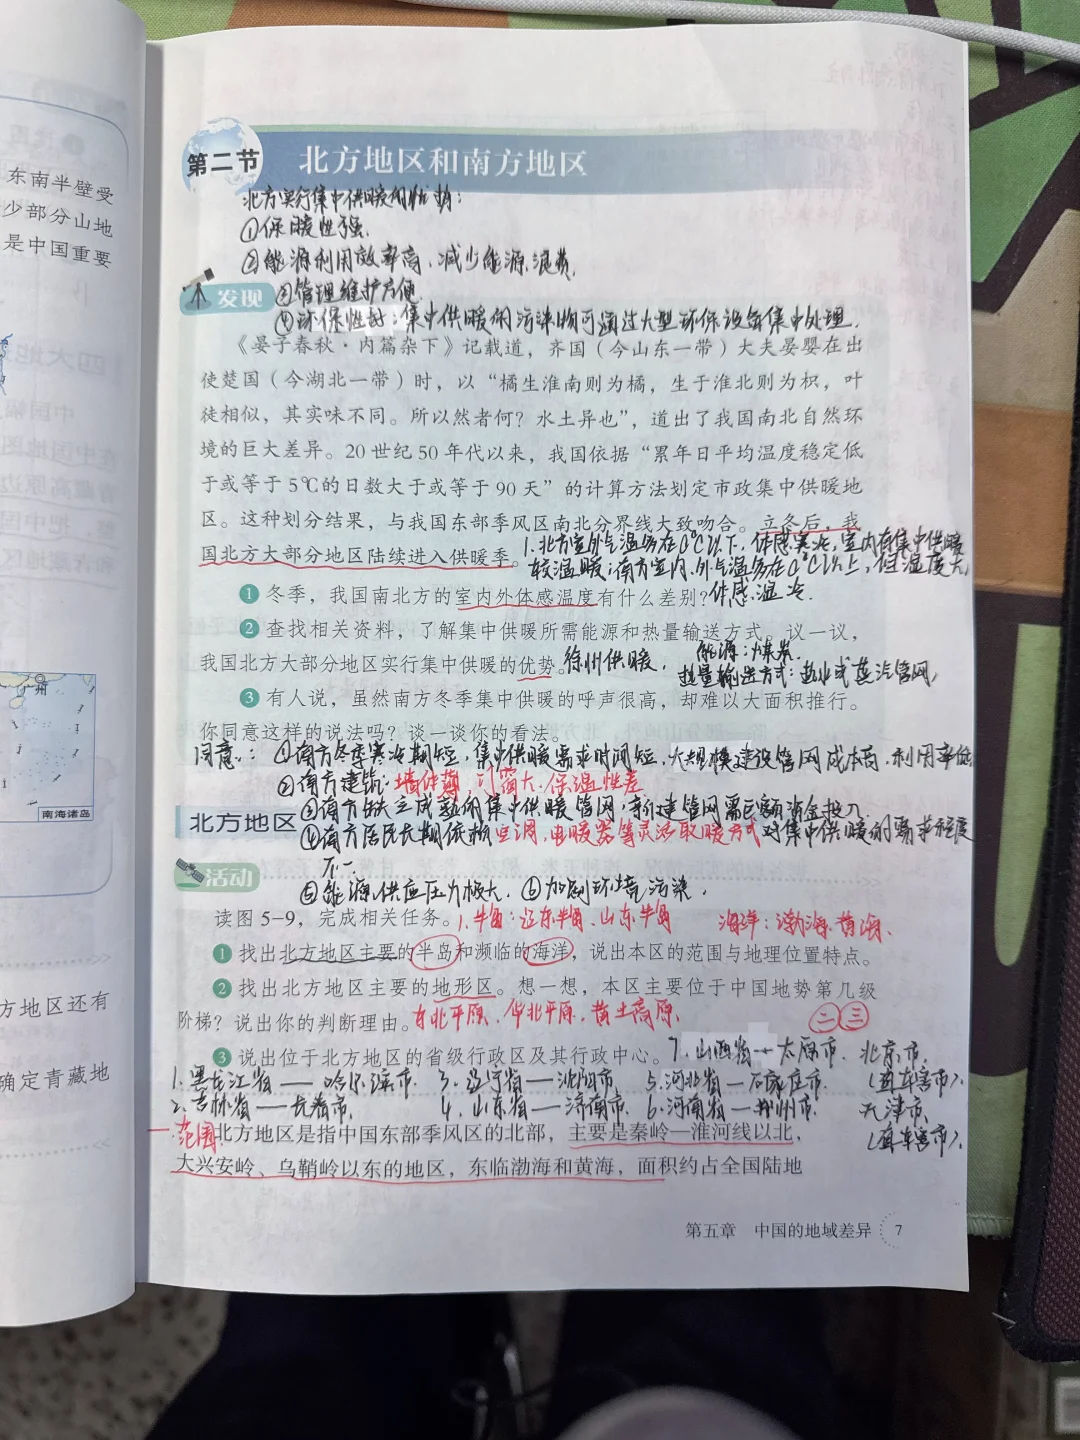 东南半壁受
少部分山地
是中国重要
南海诸岛
方地区还有
确定青藏地
第二节 北方地区和南方地区
北方实行集中供暖的优势：
①保暖性强.
②能源利用效率高、减少能源浪费.
发现 ③管理维护方便
④环保性好：集中供暖的污染物可通过大型环保设备集中处理.
《晏子春秋·内篇杂下》记载道，齐国（今山东一带）大夫晏婴在出
使楚国（今湖北一带）时，以“橘生淮南则为橘，生于淮北则为枳，叶
徒相似，其实味不同。所以然者何？水土异也”，道出了我国南北自然环
境的巨大差异。20世纪50年代以来，我国依据“累年日平均温度稳定低
于或等于5℃的日数大于或等于90天”的计算方法划定市政集中供暖地
区。这种划分结果，与我国东部季风区南北分界线大致吻合。立冬后，我
国北方大部分地区陆续进入供暖季。
1.北方室外气温多在0℃以下，体感寒冷，室内有集中供暖
较温暖；南方室内、外气温多在0℃以上，但湿度大，
体感湿冷.
1 冬季，我国南北方的室内外体感温度有什么差别？
2 查找相关资料，了解集中供暖所需能源和热量输送方式。议一议，
我国北方大部分地区实行集中供暖的优势。徐州供暖，
能源：煤炭.
热量输送方式：热水或蒸汽管网，
3 有人说，虽然南方冬季集中供暖的呼声很高，却难以大面积推行。
你同意这样的说法吗？谈一谈你的看法。
同意：①南方冬季寒冷期短，集中供暖需求时间短，大规模建设管网成本高、利用率低
②南方建筑：墙体薄，门窗大、保温性差
③南方缺乏成熟的集中供暖管网，新建管网需巨额资金投入
北方地区 ④南方居民长期依赖空调、电暖器等灵活取暖方式 对集中供暖的需求程度
不一
活动
⑤能源供应压力极大. ⑥加剧环境污染.
读图5-9，完成相关任务。1.半岛：辽东半岛、山东半岛 海洋：渤海、黄海.
1 找出北方地区主要的半岛和濒临的海洋，说出本区的范围与地理位置特点。
2 找出北方地区主要的地形区。想一想，本区主要位于中国地势第几级
阶梯？说出你的判断理由。东北平原、华北平原、黄土高原. 二 三
3 说出位于北方地区的省级行政区及其行政中心。7.山西省—太原市. 北京市.
1.黑龙江省——哈尔滨市. 3.辽宁省——沈阳市. 5.河北省—石家庄市. (直辖市).
2.吉林省——长春市. 4.山东省——济南市. 6.河南省——郑州市. 天津市.
(直辖市).
一.范围 北方地区是指中国东部季风区的北部，主要是秦岭—淮河线以北，
大兴安岭、乌鞘岭以东的地区，东临渤海和黄海，面积约占全国陆地
第五章 中国的地域差异 7